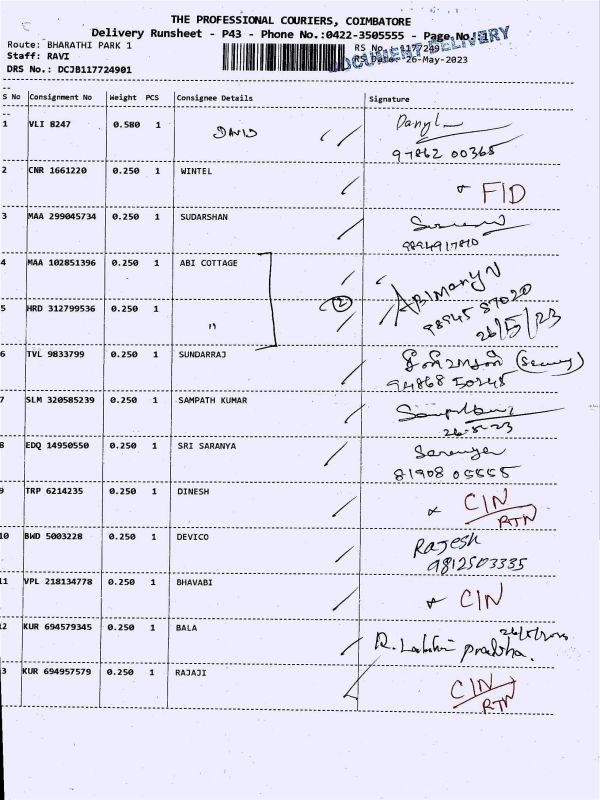 THE PROFESSIONAL COURIERS, COIMBATORE
Delivery Runsheet - P43 - Phone No.:0422-3505555 - Page No.:1
Route: BHARATHI PARK 1 RS No. 1177249
Staff: RAVI RS Date: 26-May-2023
DOCUMENT DELIVERY
DRS No.: DCJB117724901
S No Consignment No Weight PCS Consignee Details Signature
1 VLI 8247 0.580 1 DAVID Daryl
97862 00365
2 CNR 1661220 0.250 1 WINTEL FID
3 MAA 299045734 0.250 1 SUDARSHAN
9894917870
4 MAA 102851396 0.250 1 ABI COTTAGE ABIMANYU
98945 87020
5 HRD 312799536 0.250 1 " 2 26/5/23
6 TVL 9833799 0.250 1 SUNDARRAJ
94868 50248
7 SLM 320585239 0.250 1 SAMPATH KUMAR
26-5-23
8 EDQ 14950550 0.250 1 SRI SARANYA Saranya
81908 05555
9 TRP 6214235 0.250 1 DINESH CIN
RTN
10 BWD 5003228 0.250 1 DEVICO Rajesh
9812503335
11 VPL 218134778 0.250 1 BHAVABI CIN
12 KUR 694579345 0.250 1 BALA R. Lakshmi prabha.
13 KUR 694957579 0.250 1 RAJAJI CIN
RTN